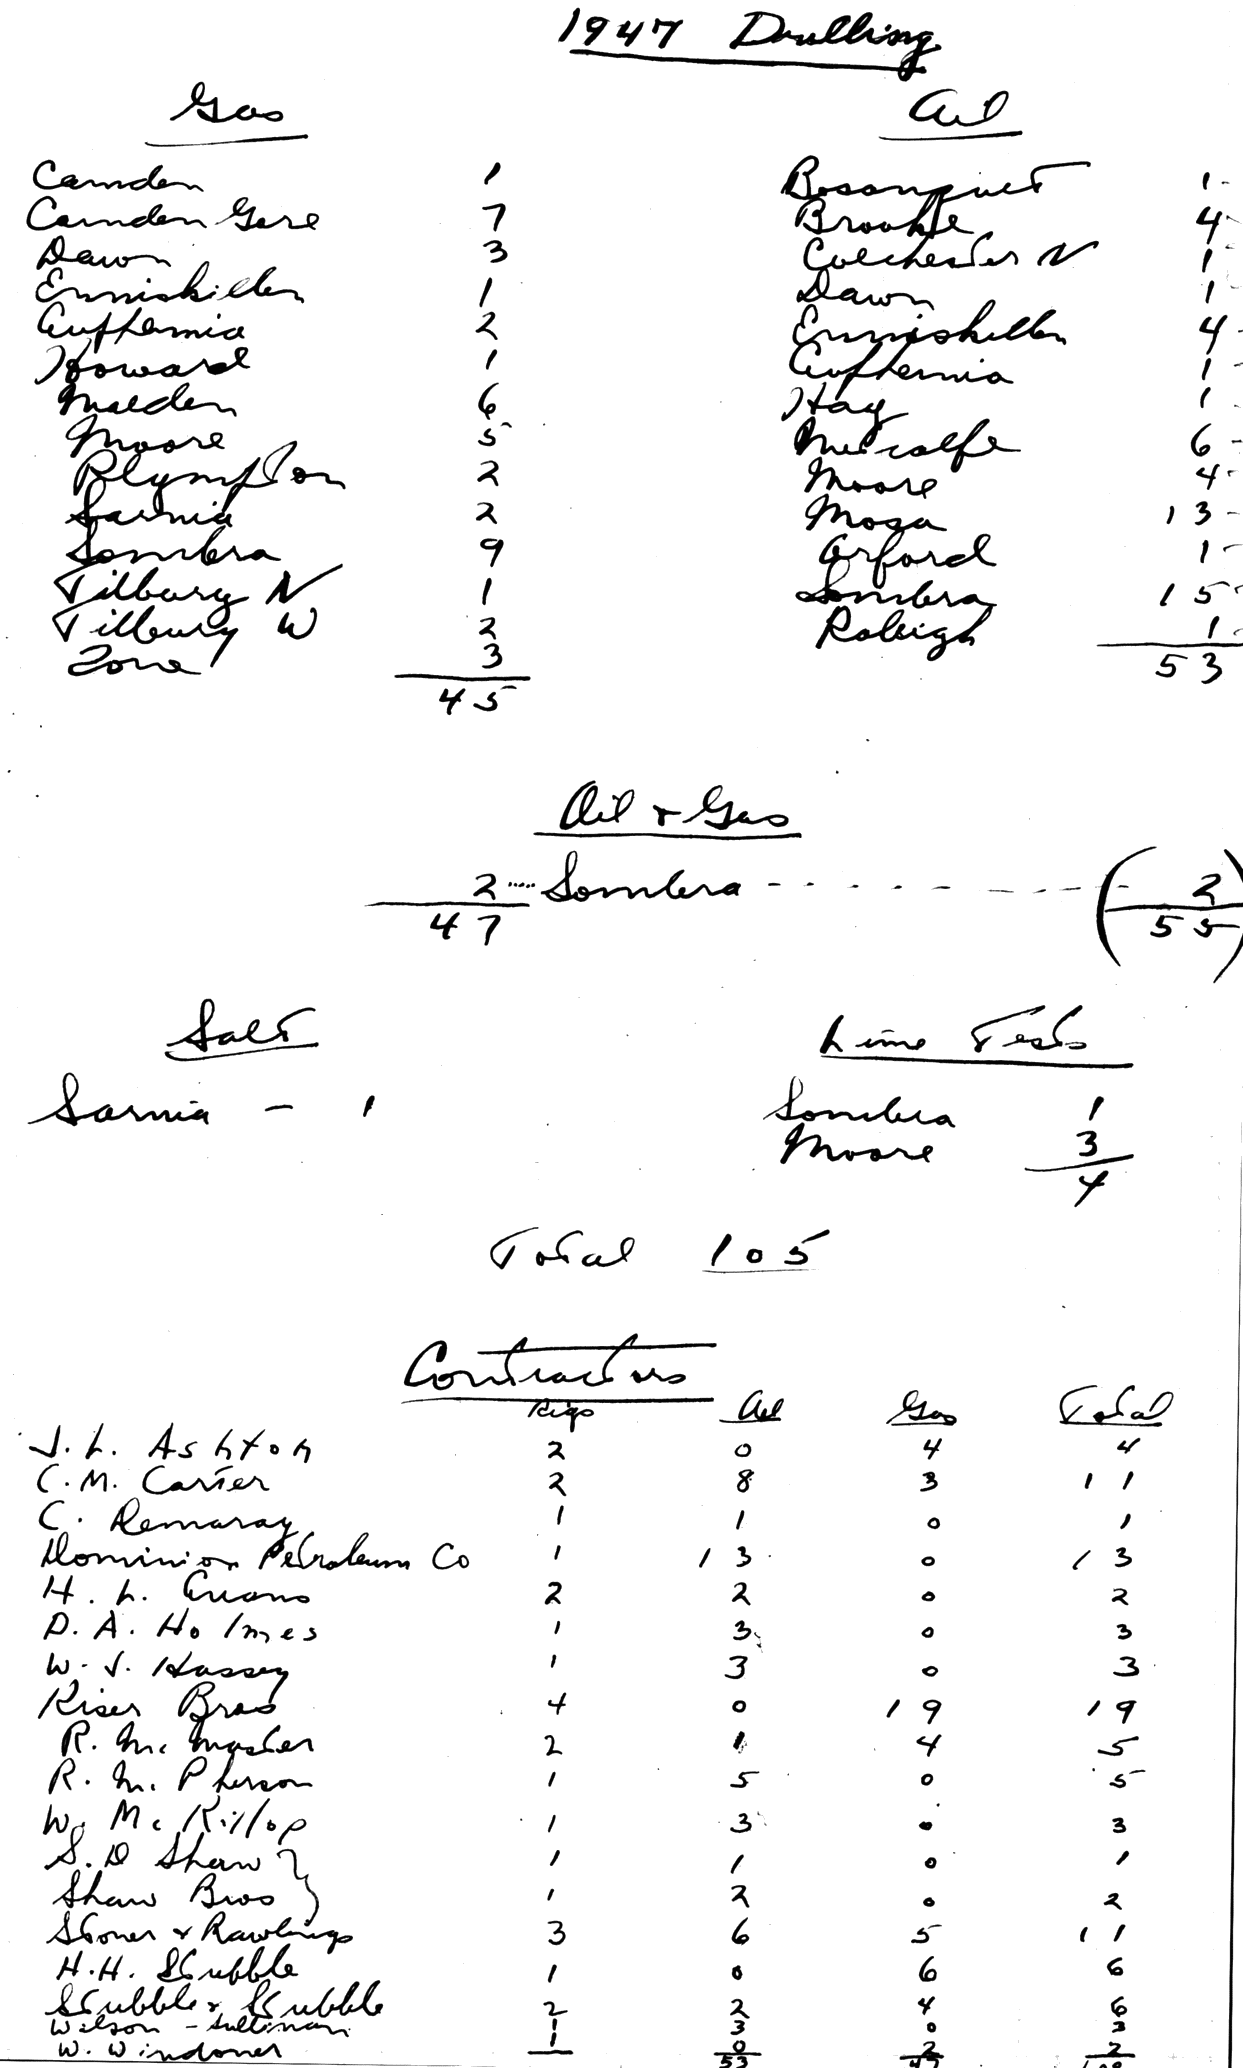 1947 Drilling
Gas
Camden 1
Camden Gore 7
Dawn 3
Enniskillen 1
Euphemia 2
Howard 1
Malden 6
Moore 5
Plympton 2
Sarnia 2
Sombra 9
Tilbury N 1
Tilbury W 2
Zone 3
45
Oil
Bosanquet 1-
Brooke 4-
Colchester N 1-
Dawn 1-
Enniskillen 4-
Euphemia 1-
Hay 1-
Metcalfe 6-
Moore 4-
Mosa 13-
Orford 1-
Sombra 15-
Raleigh 1-
53
Oil & Gas
2 ..... Sombra - - - - - - - - - ( 2
47 55 )
Salt
Sarnia - 1
Lime Tests
Sombra 1
Moore 3
4
Total 105
Contractors
Rigs Oil Gas Total
J. L. Ashton 2 0 4 4
C. M. Carter 2 8 3 11
C. Demaray 1 1 0 1
Dominion Petroleum Co 1 13 0 13
H. L. Evans 2 2 0 2
D. A. Holmes 1 3 0 3
W. J. Hussey 1 3 0 3
Kiser Bros 4 0 19 19
R. McMaster 2 1 4 5
R. McPherson 1 5 0 5
W. McKillop 1 3 0 3
S. D Shaw } 1 1 0 1
Shaw Bros } 1 2 0 2
Stoner & Rawlings 3 6 5 11
H. H. Stubble 1 0 6 6
Stubble & Stubble 2 2 4 6
Wilson - Sullivan 1 3 0 3
W. Windover 1 0 2 2
53 47